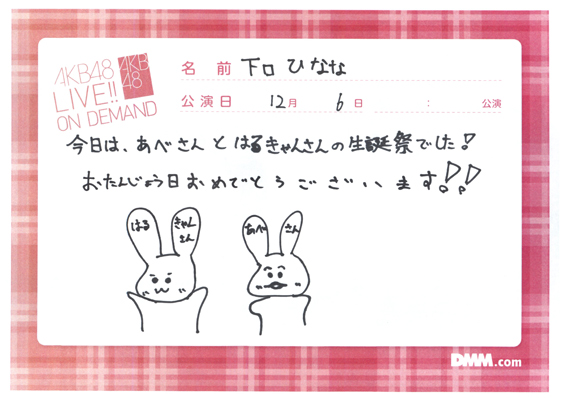 AKB48
LIVE!!
ON DEMAND
AKB
48
名前 下口ひなな
公演日 12月 6日 : 公演
今日は、あべさんとはるきゃんさんの生誕祭でした!
おたんじょう日おめでとうございます!!
はる きゃん
さん
あべ さん
DMM.com